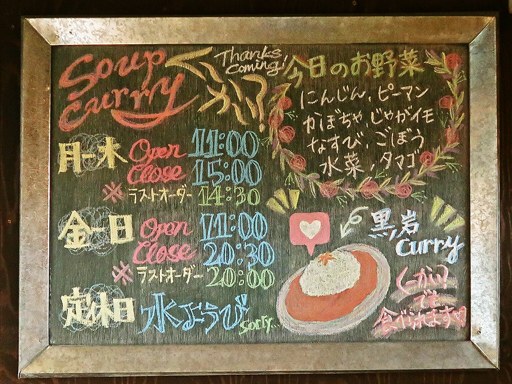 Soup
Curry
くーかい?
Thanks
Coming!
今日のお野菜
にんじん、ピーマン
かぼちゃ、じゃがイモ
なすび、ごぼう
水菜、タマゴ
月ー木 Open 11:00
Close 15:00
※ラストオーダー 14:30
金ー日 Open 11:00
Close 20:30
※ラストオーダー 20:00
定休日 水ようび
Sorry...
黒岩
Curry
くーかい?
でも
食べられますヨ